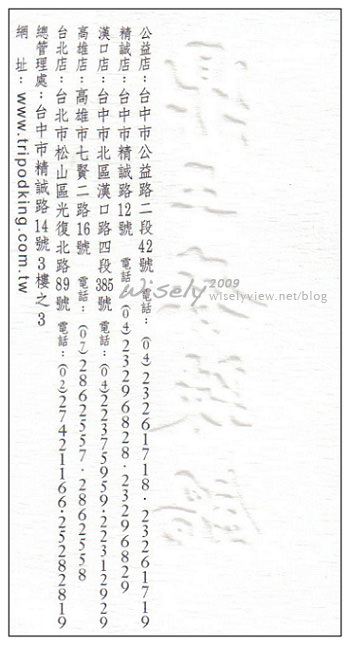 公益店：台中市公益路二段42號 電話：(04)23261718．23261719
精誠店：台中市精誠路12號 電話：(04)23296828．23296829
漢口店：台中市北區漢口路四段385號 電話：(04)22375959．22312929
高雄店：高雄市七賢二路16號 電話：(07)2862557．2862558
台北店：台北市松山區光復北路89號 電話：(02)27421166．25282819
總管理處：台中市精誠路14號3樓之3
網　址：www.tripodking.com.tw
Wisely 2009
wiselyview.net/blog